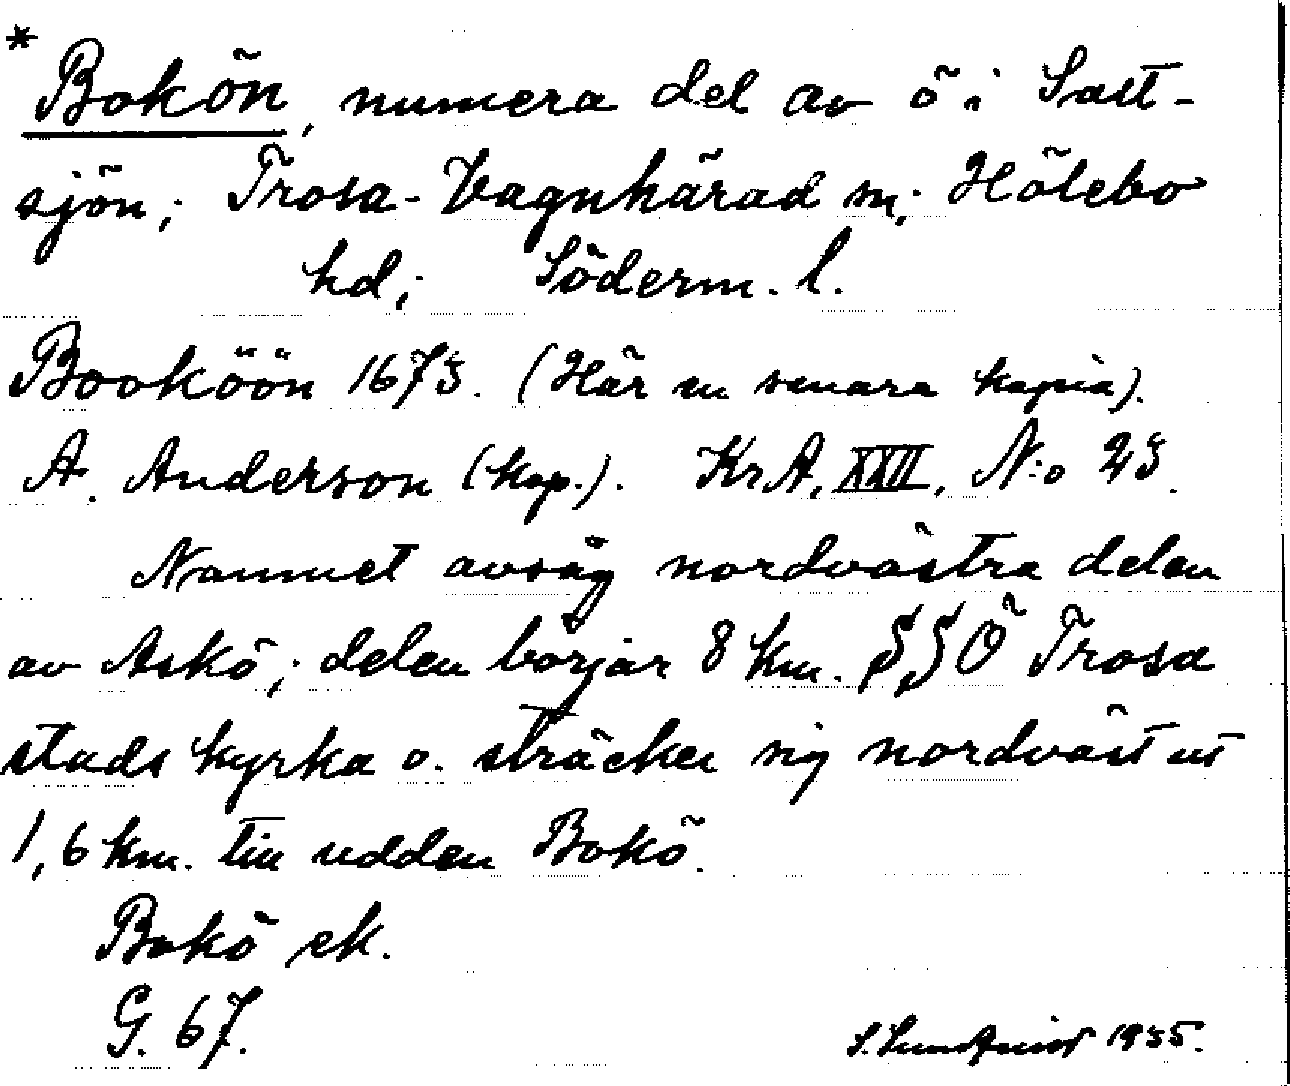 * Bokön, numera del av ö i Salt-
sjön; Trosa-Vagnhärad sn; Hölebo
hd; Söderm. l.
Booköön 1675. (Här en senare kopia).
A. Anderson (kop.). KrA, XXII, N:o 25.
Namnet avsåg nordvästra delen
av Askö; delen börjar 8 km. SSÖ Trosa
stads kyrka o. sträcker sig nordväst ut
1,6 km. till udden Bokö.
Bokö ek.
G. 67.
S. Lundquist 1935.